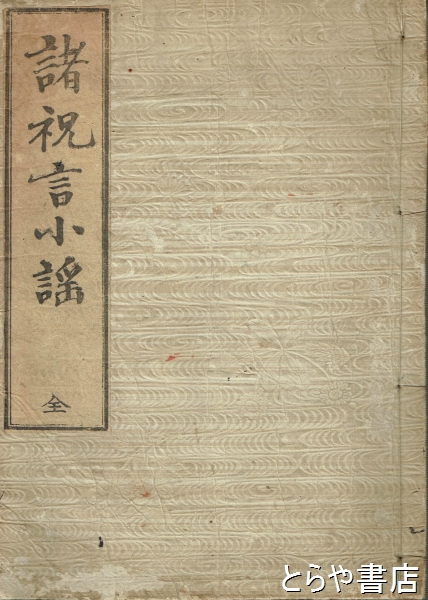 諸祝言小謡
全
とらや書店